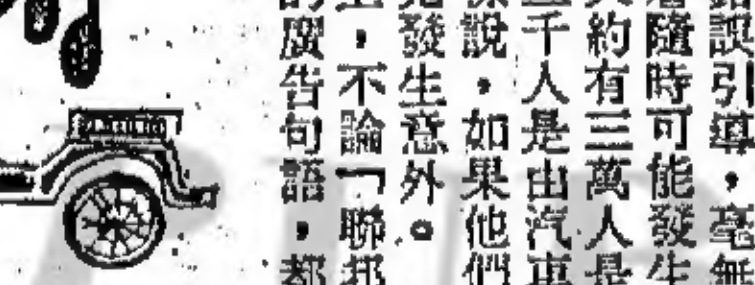 誤引導，毫無
隨時可能發生
約有三萬人是
千人是由汽車
說，如果他們
發生意外。
，不論「聯邦
廣告句語，都